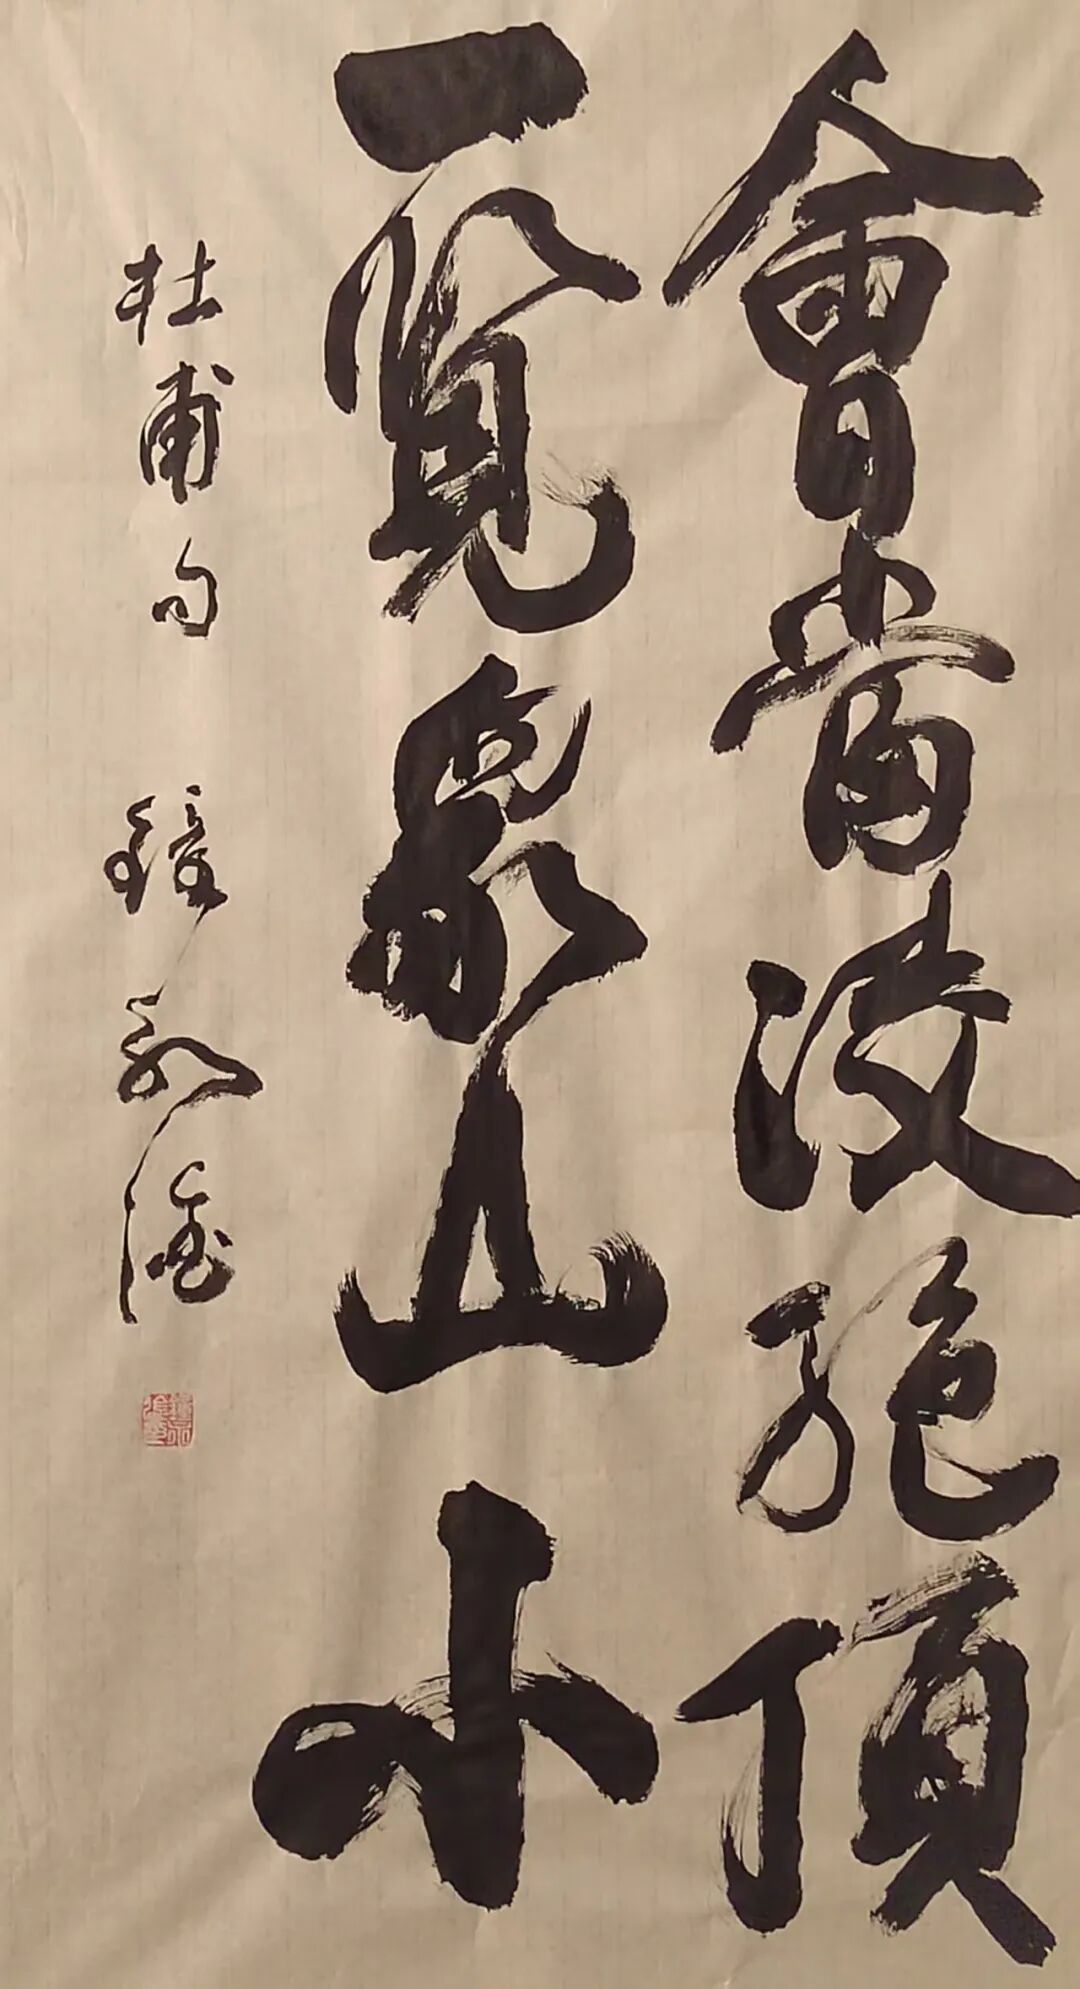 會當凌絕頂
一覽眾山小
杜甫句